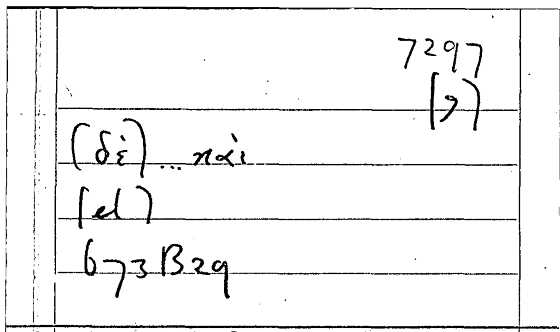 7297
(و)
(δὲ)... καὶ
(el)
673B29